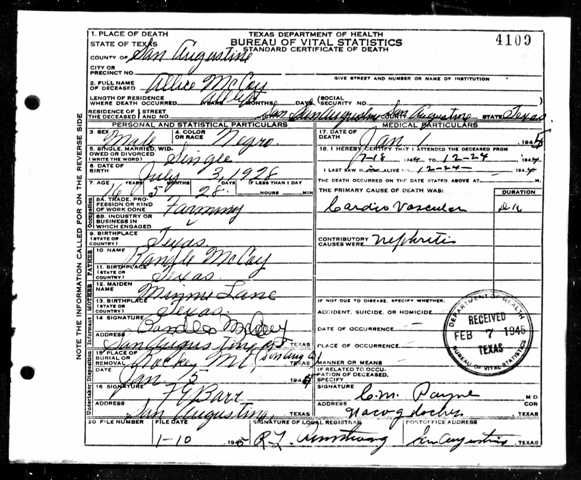 1. PLACE OF DEATH
STATE OF TEXAS
TEXAS DEPARTMENT OF HEALTH
BUREAU OF VITAL STATISTICS
STANDARD CERTIFICATE OF DEATH
4109
COUNTY OF San Augustine
CITY OR PRECINCT NO.
GIVE STREET AND NUMBER OR NAME OF INSTITUTION
2. FULL NAME OF DECEASED Allie McCoy
LENGTH OF RESIDENCE WHERE DEATH OCCURRED YEARS MONTHS DAYS (SOCIAL SECURITY NO.
RESIDENCE OF THE DECEASED STREET AND NO. San Augustine San Augustine STATE Texas
PERSONAL AND STATISTICAL PARTICULARS
MEDICAL PARTICULARS
3. SEX Male 4. COLOR OR RACE Negro
17. DATE OF DEATH Jan 1945
5. SINGLE, MARRIED, WIDOWED OR DIVORCED (WRITE THE WORD) Single
18. I HEREBY CERTIFY THAT I ATTENDED THE DECEASED FROM
12-18 1944 TO 12-24 1944
6. DATE OF BIRTH July 3, 1928
I LAST SAW ALIVE ON 12-24 1944
THE DEATH OCCURRED ON THE DATE STATED ABOVE AT M.
7. AGE 16 5 28 IF LESS THAN 1 DAY
HOURS MIN
THE PRIMARY CAUSE OF DEATH WAS: DURATION
8A. TRADE, PROFESSION OR KIND OF WORK DONE Farming
Cardio Vascular
8B. INDUSTRY OR BUSINESS IN WHICH ENGAGED
9. BIRTHPLACE (STATE OR COUNTRY) Texas
CONTRIBUTORY CAUSES WERE: Nephritis
10. NAME McCoy
11. BIRTHPLACE (STATE OR COUNTRY) Texas
12. MAIDEN NAME Minnie Lane
13. BIRTHPLACE (STATE OR COUNTRY) Texas
IF NOT DUE TO DISEASE, SPECIFY WHETHER:
ACCIDENT, SUICIDE, OR HOMICIDE
14. SIGNATURE McCoy
DATE OF OCCURRENCE
ADDRESS San Augustine TEXAS
PLACE OF OCCURRENCE
15. PLACE OF BURIAL OR REMOVAL Rocky Mt
MANNER OR MEANS
DATE Jan 5 1945
IF RELATED TO OCCUPATION OF DECEASED, SPECIFY
16. SIGNATURE Barr
SIGNATURE C.M. Payne M D
ADDRESS San Augustine, TEXAS
ADDRESS Nacogdoches TEXAS
20 FILE NUMBER FILE DATE SIGNATURE OF LOCAL REGISTRAR POSTOFFICE ADDRESS
1-10 1945 R L Armstrong San Augustine TEXAS
DEPARTMENT OF HEALTH
RECEIVED
FEB 7 1945
TEXAS
BUREAU OF VITAL STATISTICS
NOTE THE INFORMATION CALLED FOR ON THE REVERSE SIDE
Occupation
FATHER
MOTHER
Informant
Undertaker Disposition